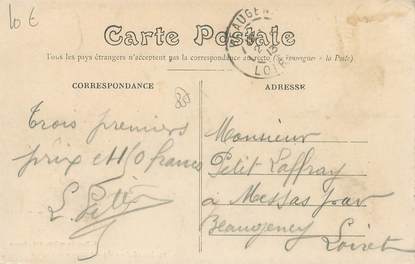 10 €
Carte Postale
Tous les pays étrangers n'acceptent pas la correspondance au recto (Se renseigner à la Poste)
BEAUGENCY
13
LOIRET
CORRESPONDANCE
ADRESSE
Trois premiers
prix et 110 francs
Monsieur
Petit Laffray
à Messas par
Beaugency
Loiret